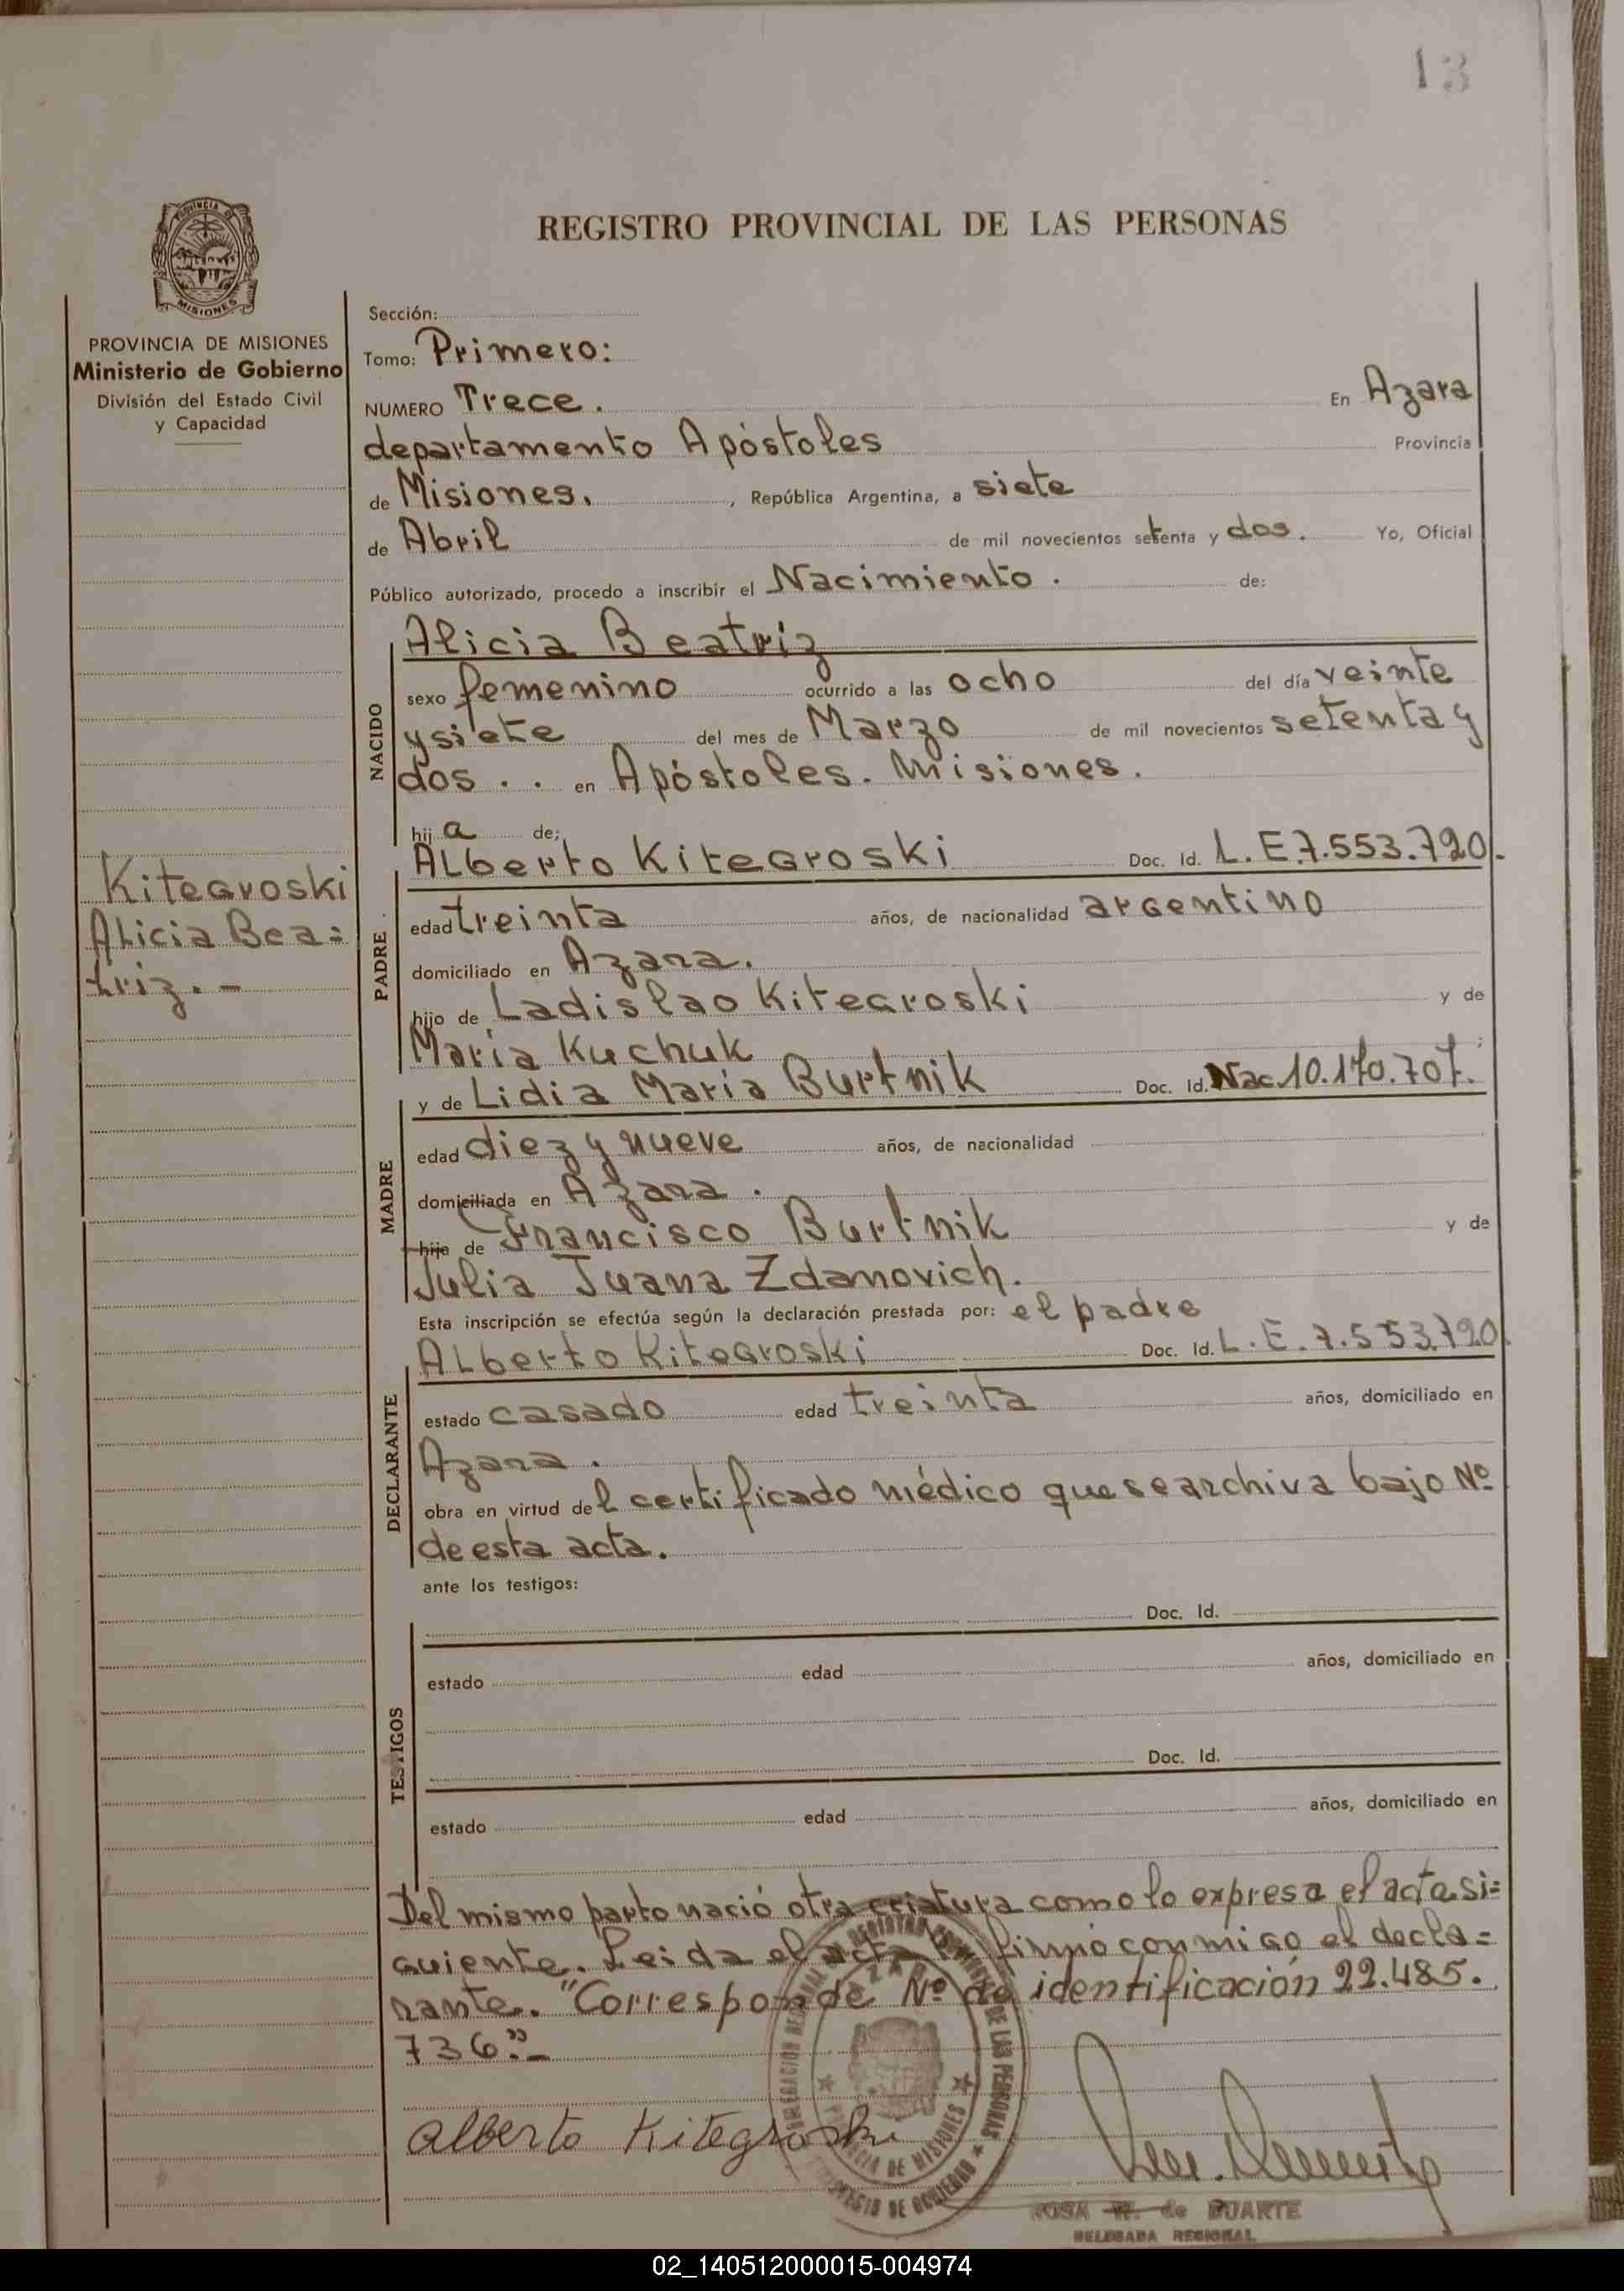 13
REGISTRO PROVINCIAL DE LAS PERSONAS
PROVINCIA DE
MISIONES
PROVINCIA DE MISIONES
Ministerio de Gobierno
División del Estado Civil
y Capacidad
Kitegroski
Alicia Bea=
triz.-
Sección:
Tomo: Primero:
NUMERO Trece. En Azara
departamento Apóstoles Provincia
de Misiones. , República Argentina, a siete
de Abril de mil novecientos setenta y dos. Yo, Oficial
Público autorizado, procedo a inscribir el Nacimiento. de:
NACIDO
Alicia Beatriz
sexo femenino ocurrido a las ocho del día veinte
y siete del mes de Marzo de mil novecientos setenta y
dos . . en Apóstoles. Misiones.
hij a de:
PADRE.
Alberto Kitegroski Doc. Id. L.E.7.553.720.-
edad treinta años, de nacionalidad argentino
domiciliado en Azara.
hijo de Ladislao Kitegroski y de
María Kuchuk ;
MADRE
y de Lidia María Burtnik Doc. Id. Nac.10.170.707.
edad diez y nueve años, de nacionalidad
domiciliada en Azara.
hija de Francisco Burtnik y de
Julia Juana Zdanovich.
Esta inscripción se efectúa según la declaración prestada por: el padre
DECLARANTE
Alberto Kitegroski Doc. Id. L.E.7.553.720.
estado casado edad treinta años, domiciliado en
Azara.
obra en virtud del certificado médico que se archiva bajo Nº
de esta acta.
ante los testigos:
TESTIGOS
Doc. Id.
estado edad años, domiciliado en
Doc. Id.
estado edad años, domiciliado en
Del mismo parto nació otra criatura como lo expresa el acta si=
guiente. Leida el acta firmó conmigo el decla=
rante. "Corresponde Nº de identificación 22.485.
736."-
Alberto Kitegroski
DE LAS PERSONAS
DE MISIONES
ROSA de DUARTE
DELEGADA REGIONAL
02_140512000015-004974